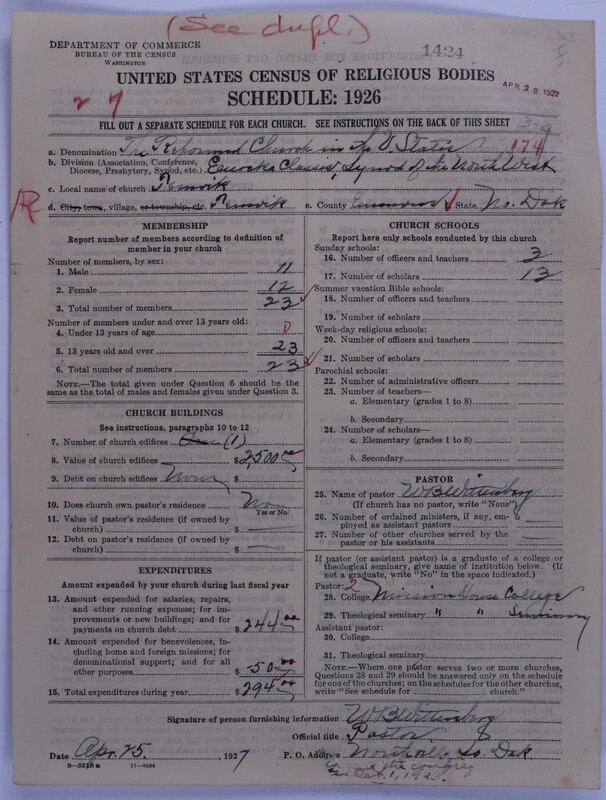 (See dupl.)
DEPARTMENT OF COMMERCE
BUREAU OF THE CENSUS
WASHINGTON
1424
APR 28 1927
UNITED STATES CENSUS OF RELIGIOUS BODIES
SCHEDULE: 1926
FILL OUT A SEPARATE SCHEDULE FOR EACH CHURCH. SEE INSTRUCTIONS ON THE BACK OF THIS SHEET
a. Denomination The Reformed Church in the U. States 174
b. Division (Association, Conference, Diocese, Presbytery, Synod, etc.) Eureka Classis, Synod of the North West
c. Local name of church Temvik
d. City, town, village, or township, etc. Temvik e. County Emmons State No. Dak
MEMBERSHIP
Report number of members according to definition of member in your church
Number of members, by sex:
1. Male 11
2. Female 12
3. Total number of members 23
Number of members under and over 13 years old:
4. Under 13 years of age 0
5. 13 years old and over 23
6. Total number of members 23
NOTE.—The total given under Question 6 should be the same as the total of males and females given under Question 3.
CHURCH BUILDINGS
See instructions, paragraphs 10 to 12
7. Number of church edifices One (1)
8. Value of church edifices $2,500.00
9. Debt on church edifices None $
10. Does church own pastor's residence No
Yes or No
11. Value of pastor's residence (if owned by church) $ —
12. Debt on pastor's residence (if owned by church) $ —
EXPENDITURES
Amount expended by your church during last fiscal year
13. Amount expended for salaries, repairs, and other running expenses; for improvements or new buildings; and for payments on church debt $244.00
14. Amount expended for benevolences, including home and foreign missions; for denominational support; and for all other purposes $50.00
15. Total expenditures during year $294.00
CHURCH SCHOOLS
Report here only schools conducted by this church
Sunday schools:
16. Number of officers and teachers 3
17. Number of scholars 13
Summer vacation Bible schools:
18. Number of officers and teachers
19. Number of scholars
Week-day religious schools:
20. Number of officers and teachers
21. Number of scholars
Parochial schools:
22. Number of administrative officers
23. Number of teachers—
a. Elementary (grades 1 to 8)
b. Secondary
24. Number of scholars—
a. Elementary (grades 1 to 8)
b. Secondary
PASTOR
25. Name of pastor W B Wittenberg
(If church has no pastor, write "None")
26. Number of ordained ministers, if any, employed as assistant pastors
27. Number of other churches served by the pastor or his assistants
If pastor (or assistant pastor) is a graduate of a college or theological seminary, give name of institution below. (If not a graduate, write "No" in the space indicated.)
Pastor: 2
28. College Mission House College
29. Theological seminary " " Seminary
Assistant pastor:
30. College
31. Theological seminary
NOTE.—Where one pastor serves two or more churches, Questions 28 and 29 should be answered only on the schedule for one of the churches; on the schedules for the other churches, write "See schedule for church."
Signature of person furnishing information W B Wittenberg
Official title Pastor
Date Apr. 25, 1927 P. O. Address Northville, So. Dak
8—5518a 11—9084